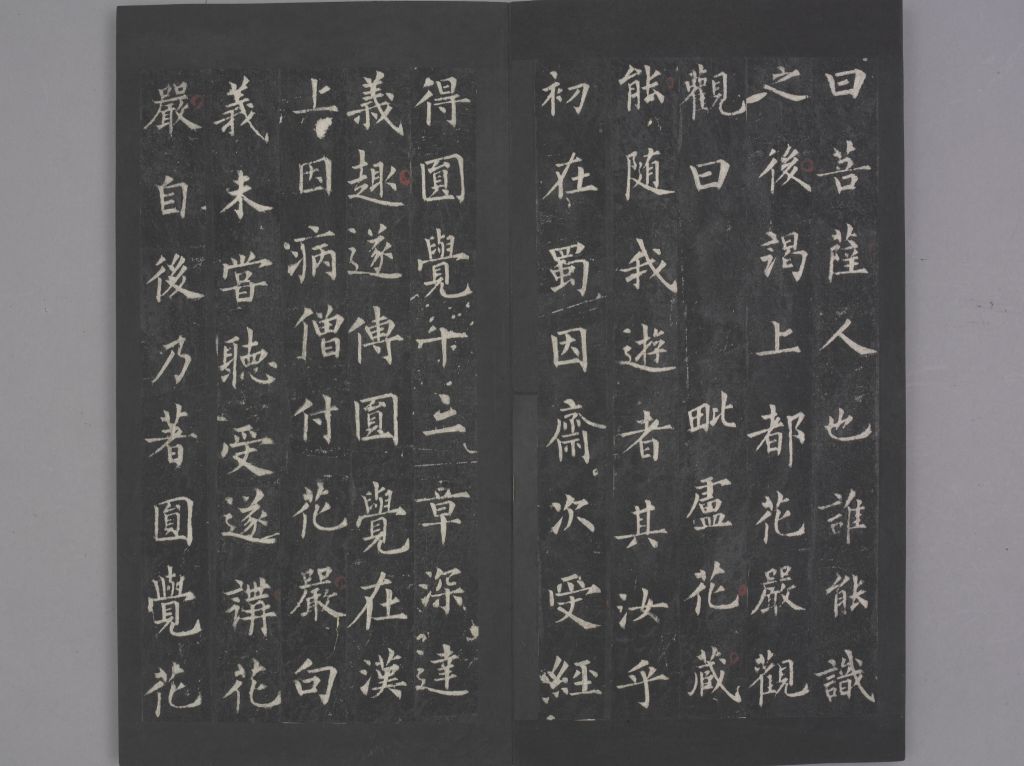 曰菩薩人也誰能識
之後謁上都花嚴觀
觀曰毗盧花藏
能随我遊者其汝乎
初在蜀因齋次受經
得圓覺十三章深達
義趣遂傳圓覺在漢
上因病僧付花嚴句
義未嘗聽受遂講花
嚴自後乃著圓覺花